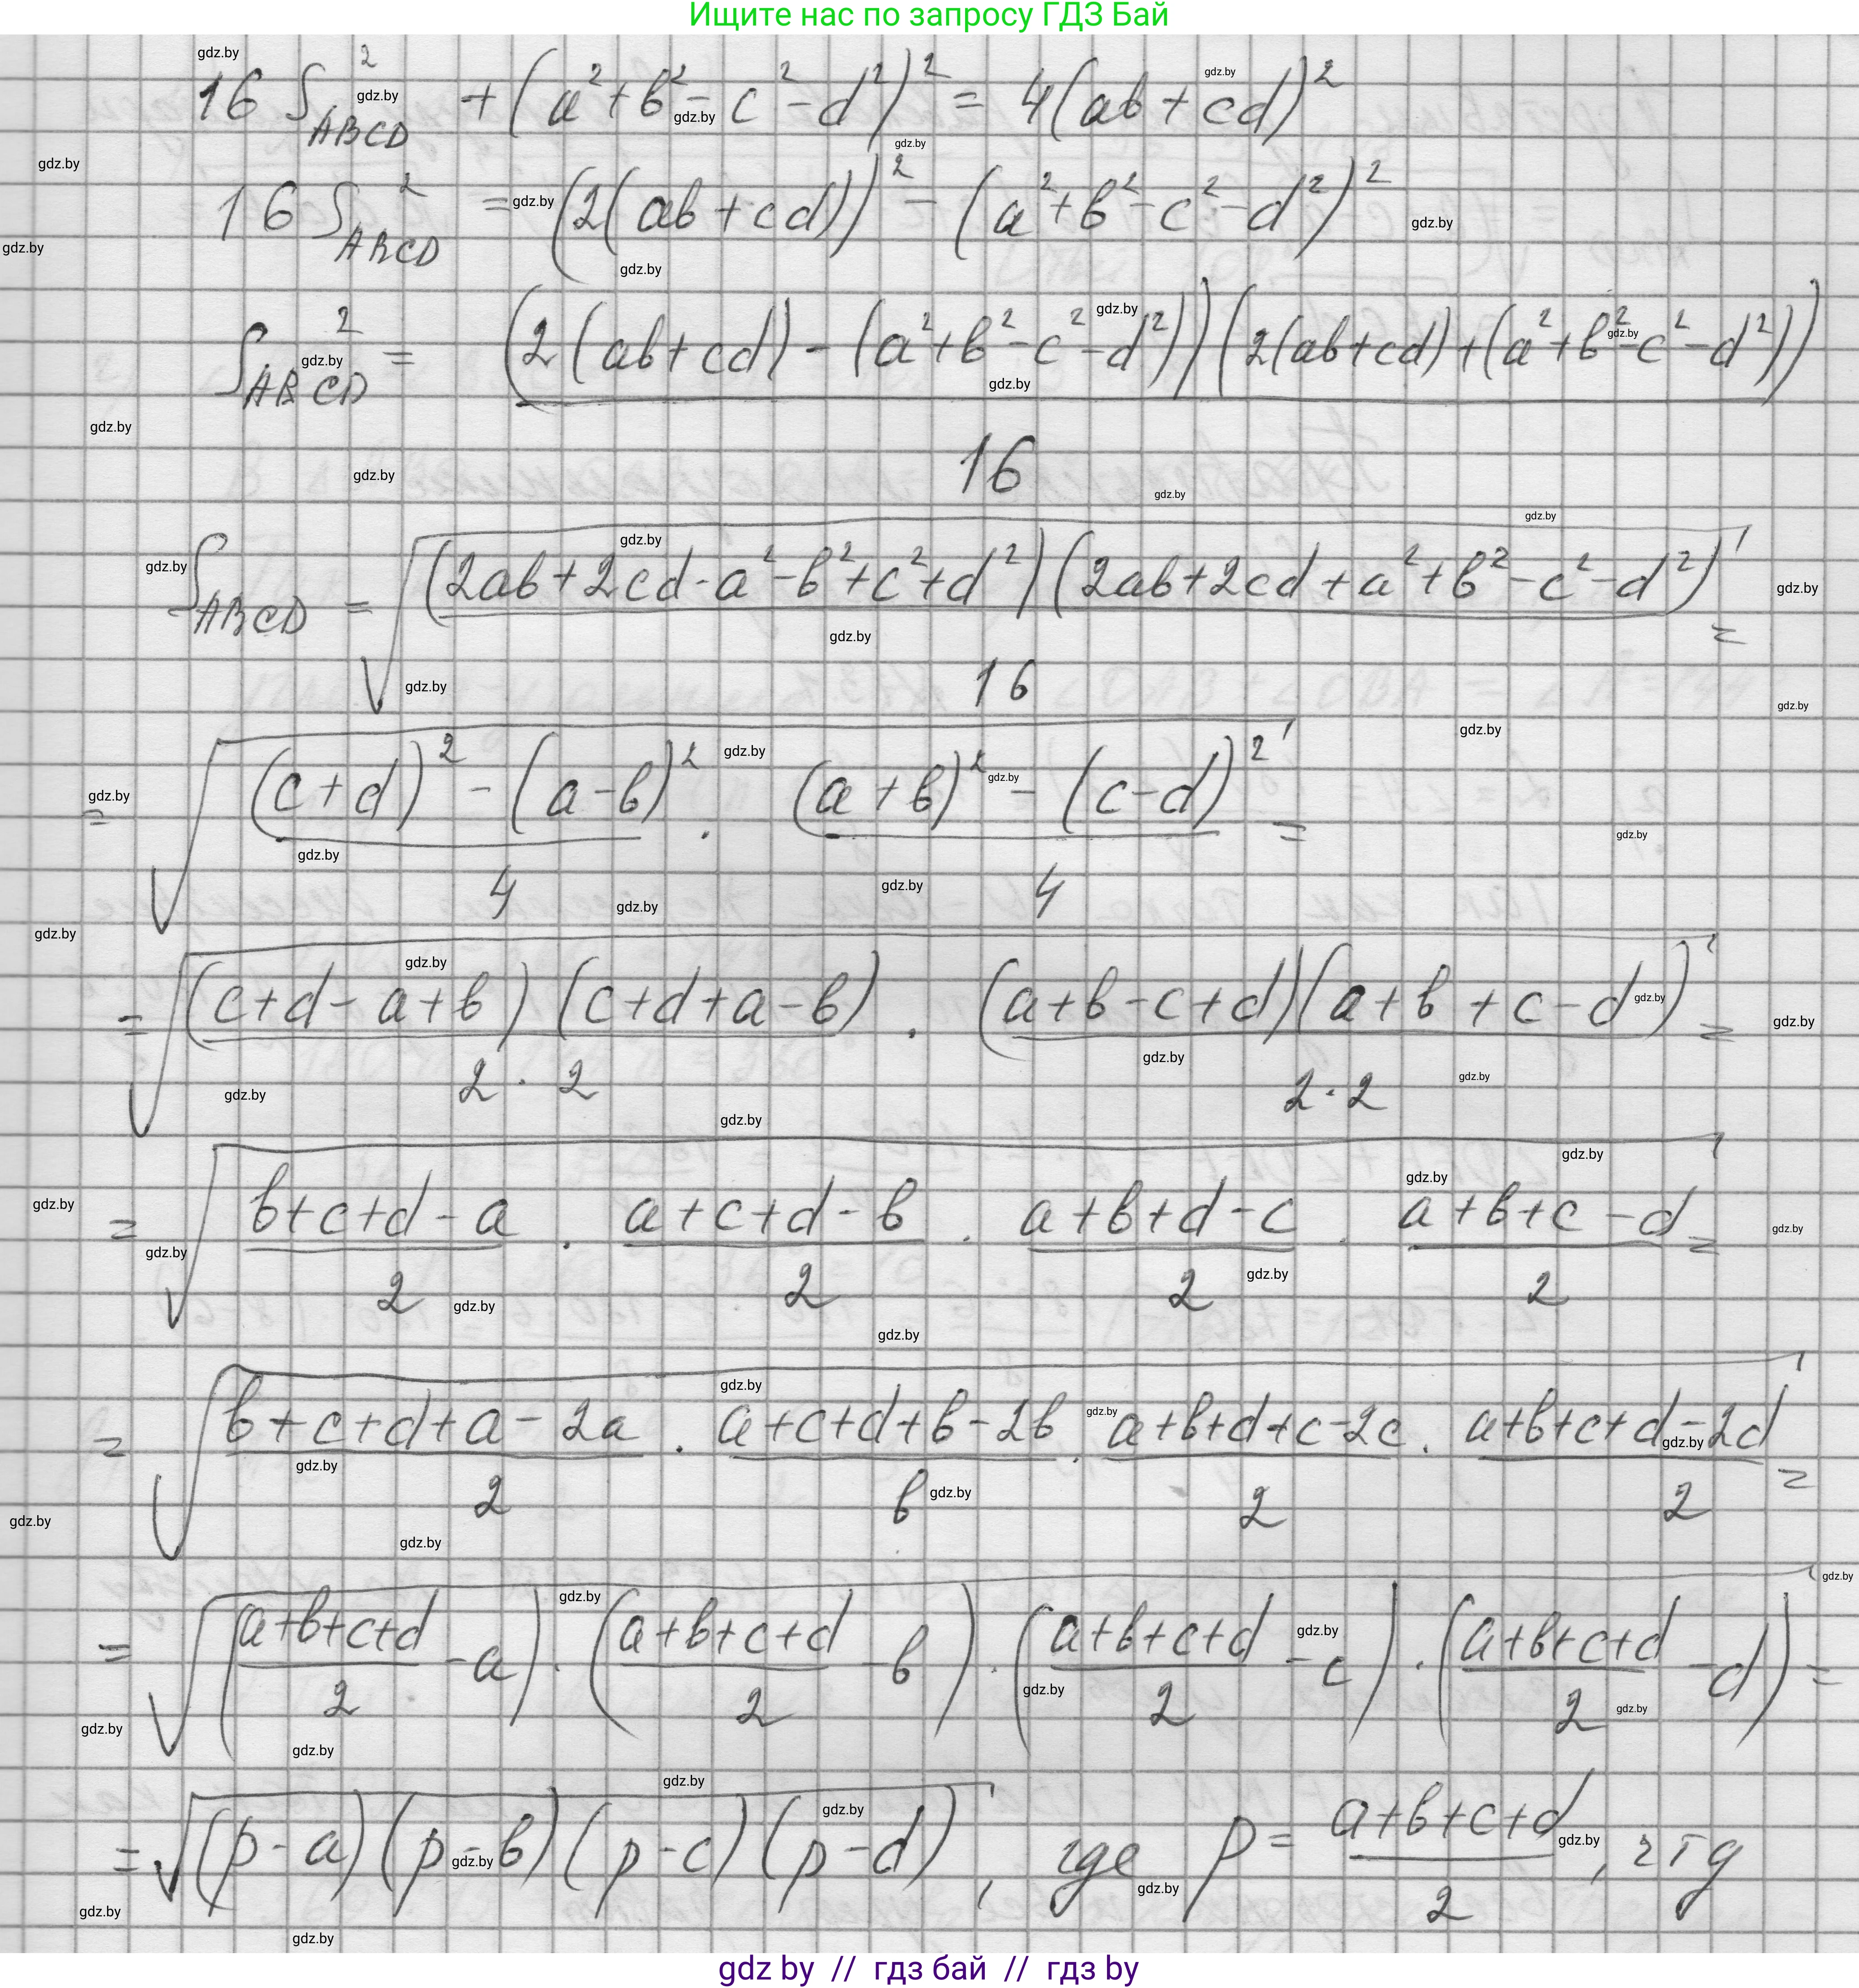 Ищите нас по запросу ГДЗ Бай
16 S²_ABCD + (a² + b² - c² - d²)² = 4(ab + cd)²
16 S²_ABCD = (2(ab + cd))² - (a² + b² - c² - d²)²
S²_ABCD = (2(ab + cd) - (a² + b² - c² - d²))(2(ab + cd) + (a² + b² - c² - d²))
16
S_ABCD = √(2ab + 2cd - a² - b² + c² + d²)(2ab + 2cd + a² + b² - c² - d²) =
16
= √(c + d)² - (a - b)² · (a + b)² - (c - d)² =
4 4
= √(c + d - a + b)(c + d + a - b) · (a + b - c + d)(a + b + c - d) =
2 · 2 2 · 2
= √b + c + d - a · a + c + d - b · a + b + d - c · a + b + c - d =
2 2 2 2
= √b + c + d + a - 2a · a + c + d + b - 2b · a + b + d + c - 2c · a + b + c + d - 2d =
2 b 2 2
= √(a + b + c + d - a) · (a + b + c + d - b) · (a + b + c + d - c) · (a + b + c + d - d) =
2 2 2 2
= √(p - a)(p - b)(p - c)(p - d), где p = a + b + c + d, чтд
2
gdz by // гдз бай // гдз by